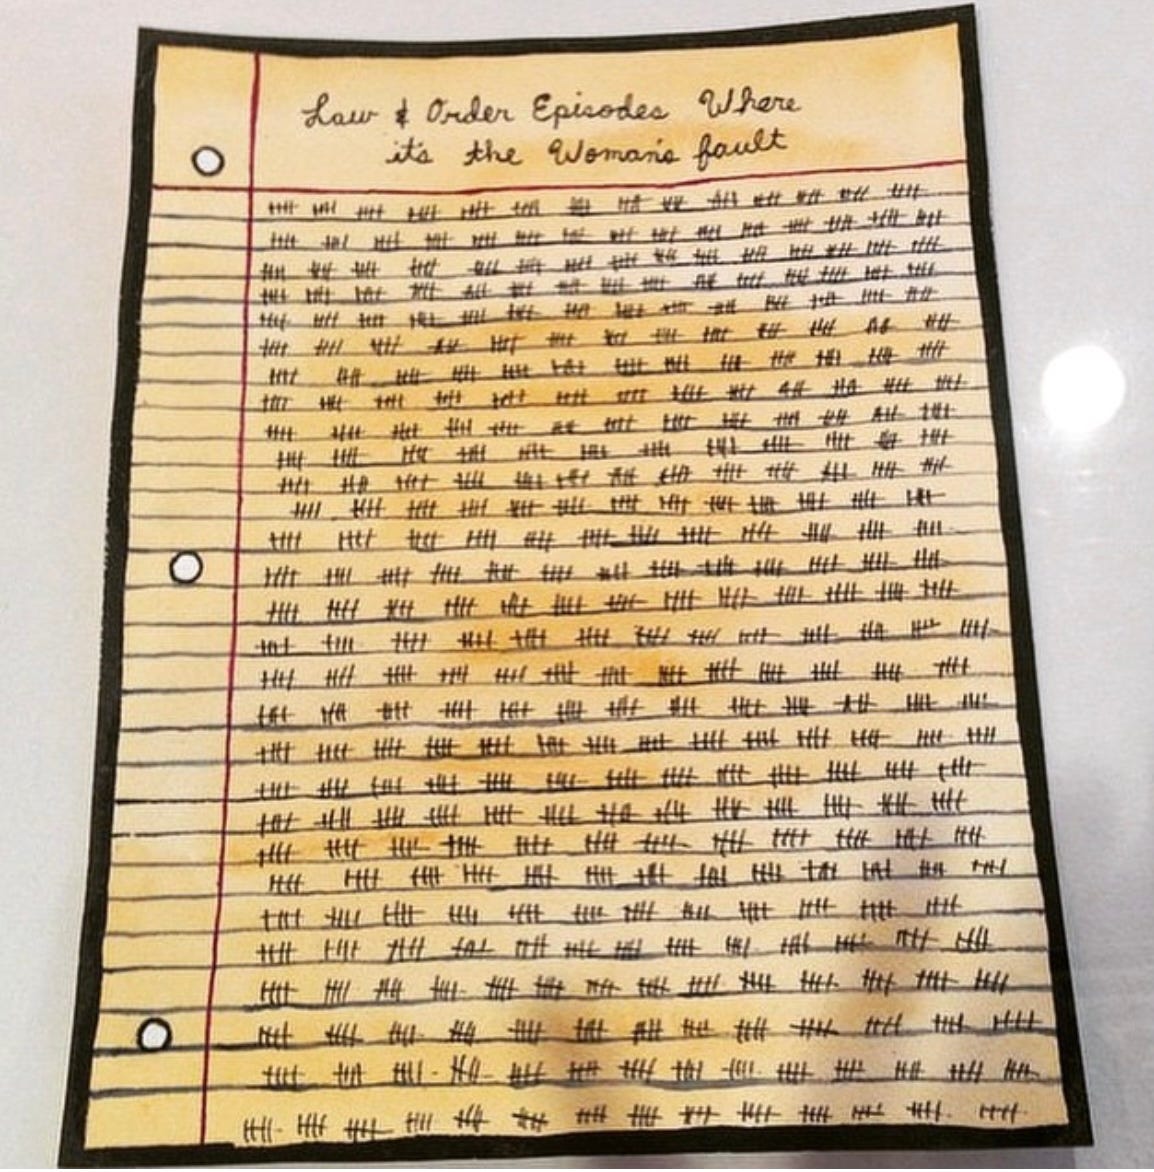 Law & Order Episodes Where
it's the Woman's fault